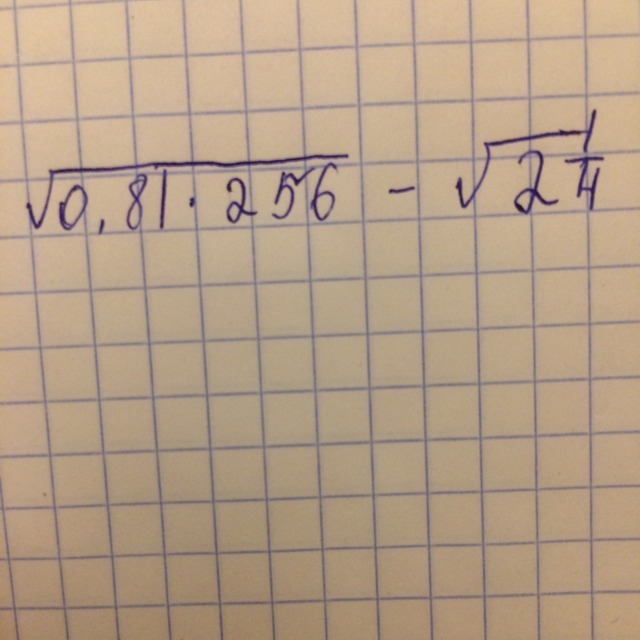 √0,81·256 - √2 1/4